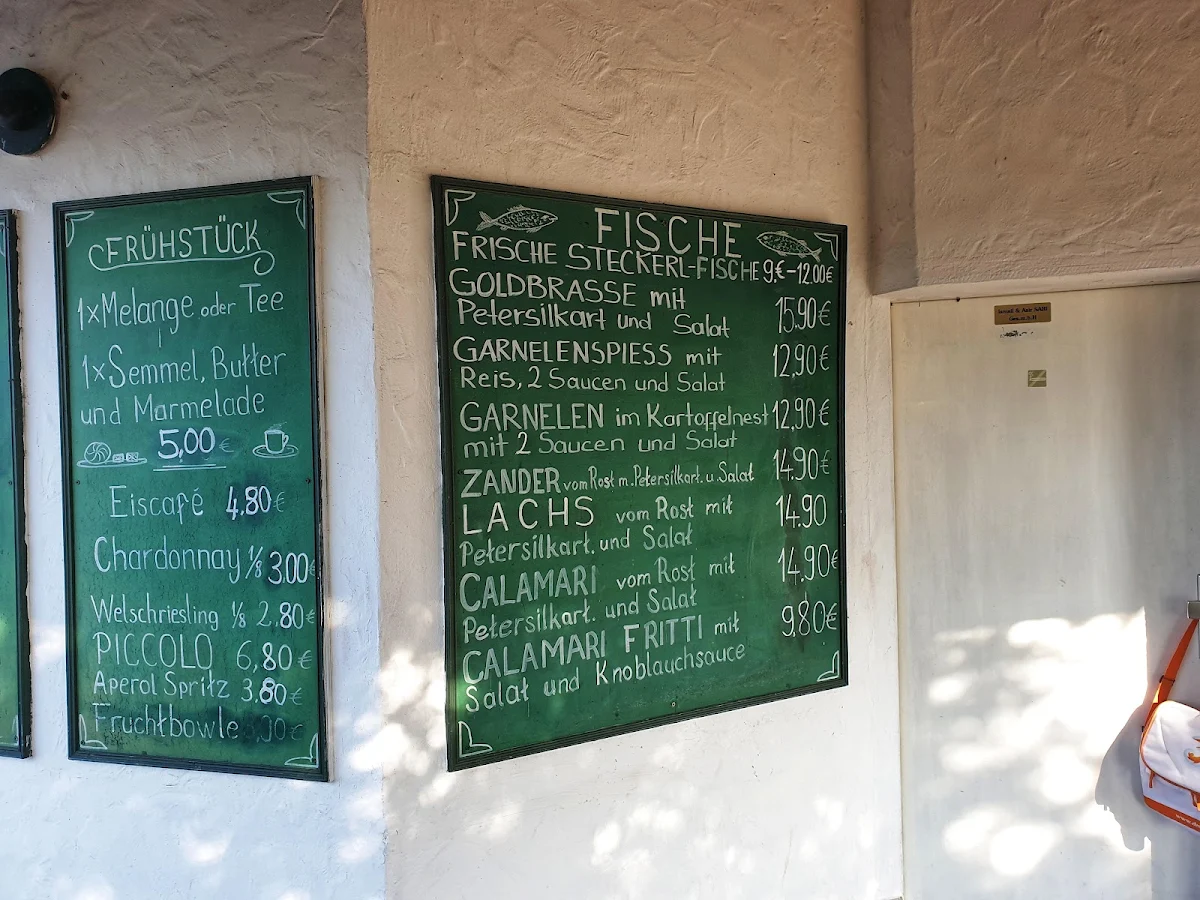 FRÜHSTÜCK
1x Melange oder Tee
1x Semmel, Butter
und Marmelade
5,00 €
Eiscafé 4,80 €
Chardonnay 1/8 3.00 €
Welschriesling 1/8 2,80 €
PICCOLO 6,80 €
Aperol Spritz 3,80 €
Fruchtbowle
FISCHE
FRISCHE STECKERL-FISCHE 9.€-12.00€
GOLDBRASSE mit
Petersilkart und Salat 15.90 €
GARNELENSPIESS mit
Reis, 2 Saucen und Salat 12,90 €
GARNELEN im Kartoffelnest 12,90 €
mit 2 Saucen und Salat
ZANDER vom Rost m. Petersilkart. u. Salat 14.90 €
LACHS vom Rost mit 14.90
Petersilkart. und Salat
CALAMARI vom Rost mit 14.90€
Petersilkart. und Salat
CALAMARI FRITTI mit 9.80€
Salat und Knoblauchsauce